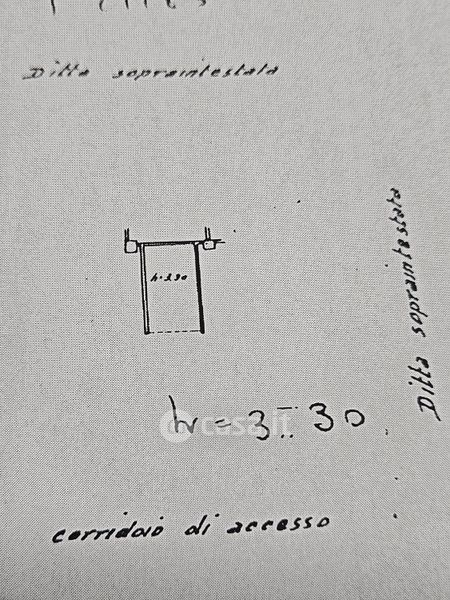 Ditta sopraintestata
h=3.30
Ditta sopraintestata
h = 3.30
casa.it
corridoio di accesso